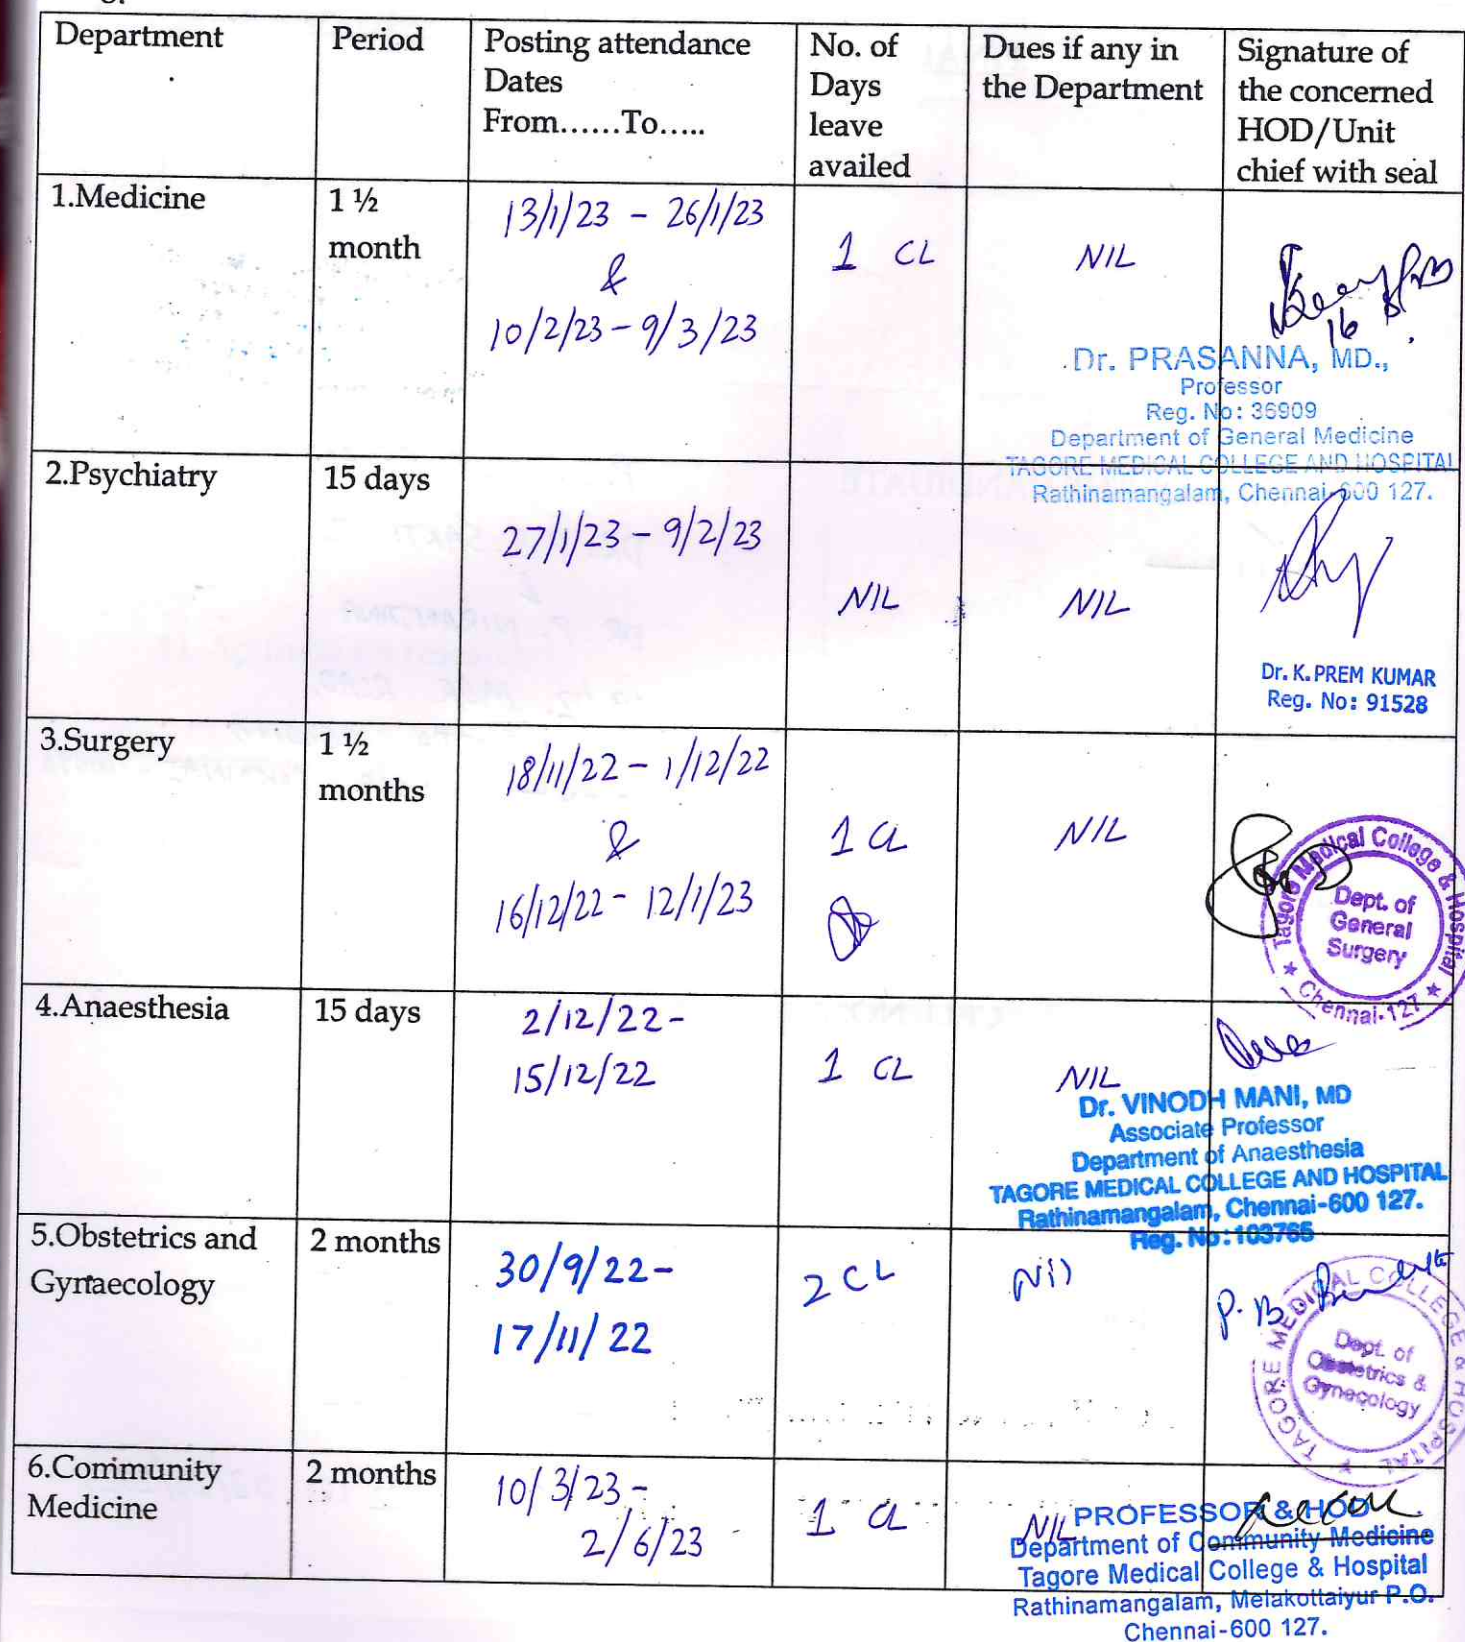 Department
Period
Posting attendance
Dates
From......To.....
No. of
Days
leave
availed
Dues if any in
the Department
Signature of
the concerned
HOD/Unit
chief with seal
1.Medicine
1 ½
month
13/1/23 - 26/1/23
&
10/2/23 - 9/3/23
1 CL
NIL
16
Dr. PRASANNA, MD.,
Professor
Reg. No: 36909
Department of General Medicine
TAGORE MEDICAL COLLEGE AND HOSPITAL
Rathinamangalam, Chennai-600 127.
2.Psychiatry
15 days
27/1/23 - 9/2/23
NIL
NIL
Dr. K. PREM KUMAR
Reg. No: 91528
3.Surgery
1 ½
months
18/11/22 - 1/12/22
&
16/12/22 - 12/1/23
1 CL
NIL
Tagore Medical College & Hospital
Dept. of
General
Surgery
Chennai-127
4.Anaesthesia
15 days
2/12/22 -
15/12/22
1 CL
NIL
Dr. VINODH MANI, MD
Associate Professor
Department of Anaesthesia
TAGORE MEDICAL COLLEGE AND HOSPITAL
Rathinamangalam, Chennai-600 127.
Reg. No: 103765
5.Obstetrics and
Gynaecology
2 months
30/9/22 -
17/11/22
2 CL
Nil
P. B.
TAGORE MEDICAL COLLEGE & HOSPITAL
Dept. of
Obstetrics &
Gynecology
6.Community
Medicine
2 months
10/3/23 -
2/6/23
1 CL
NIL
PROFESSOR & HOD
Department of Community Medicine
Tagore Medical College & Hospital
Rathinamangalam, Melakottaiyur P.O.
Chennai-600 127.